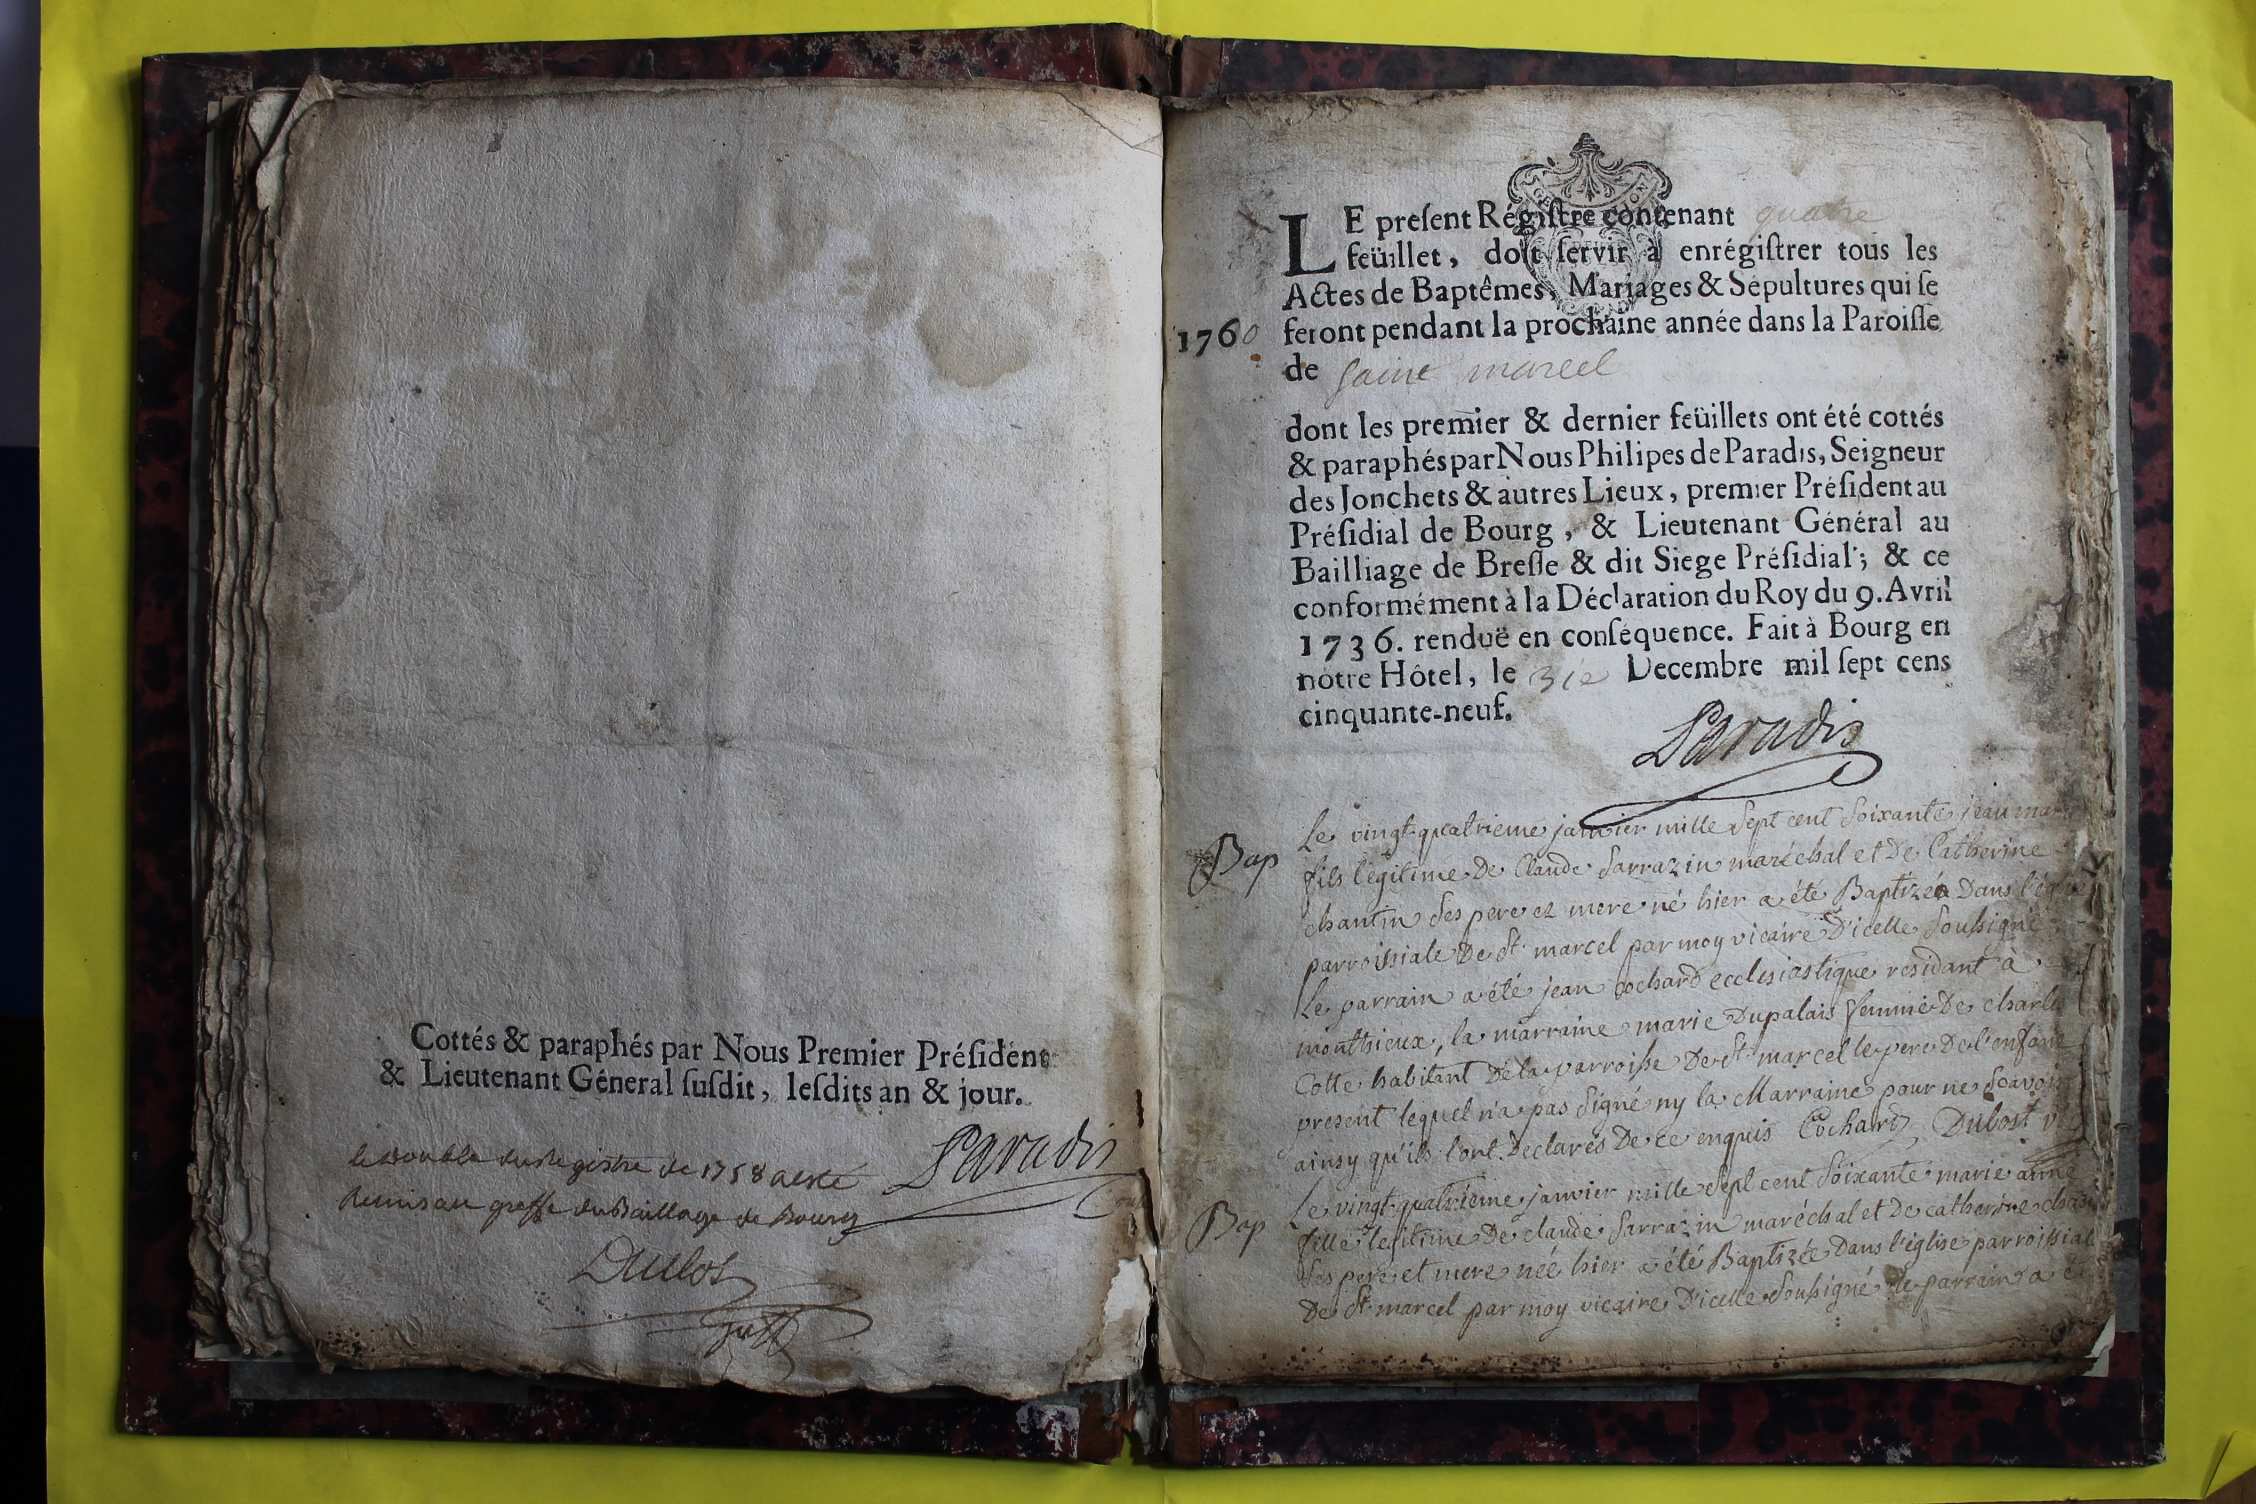 Cottés & paraphés par Nous Premier Préſident
& Lieutenant Géneral ſuſdit, leſdits an & jour.
Paradis
le double du Registre de 1758 a esté
Remis au greffe du Baillage de Bourg
Dubost
LE preſent Régiſtre contenant quatre
feüillet, doit ſervir à enrégiſtrer tous les
Actes de Baptêmes, Mariages & Sepultures qui ſe
1760 feront pendant la prochaine année dans la Paroiſſe
de Saint marcel
dont les premier & dernier feüillets ont été cottés
& paraphés par Nous Philipes de Paradis, Seigneur
des Jonchets & autres Lieux, premier Préſident au
Préſidial de Bourg, & Lieutenant Général au
Bailliage de Breſſe & dit Siege Préſidial; & ce
conformément à la Déclaration du Roy du 9. Avril
1736. renduë en conſéquence. Fait à Bourg en
notre Hôtel, le 31e Decembre mil ſept cens
cinquante-neuf.
Paradis
Bap Le vingt quatrieme janvier mille sept cent soixante jean
fils légitime De Claude Sarrazin maréchal et De Catherine
chantin ses pere et mere né hier a été Baptizé Dans l'église
parroissiale De St marcel par moy vicaire D'icelle soussigné
Le parrain a été jean cochard ecclesiastique residant a
monthieux, la marraine marie Dupalais femme De charle
Cotte habitant De la parroisse De St marcel le pere De l'enfant
present lequel n'a pas signé ny la Marraine pour ne sçavoir
ainsy qu'ils l'ont Declarés De ce enquis Cochard Dubost
Bap Le vingt quatrieme janvier mille sept cent soixante marie anne
fille legitime De claude Sarrazin maréchal et De catherine
ses pere et mere née hier a été Baptizée Dans l'église parroissial
De St marcel par moy vicaire D'icelle soussigné le parrain a